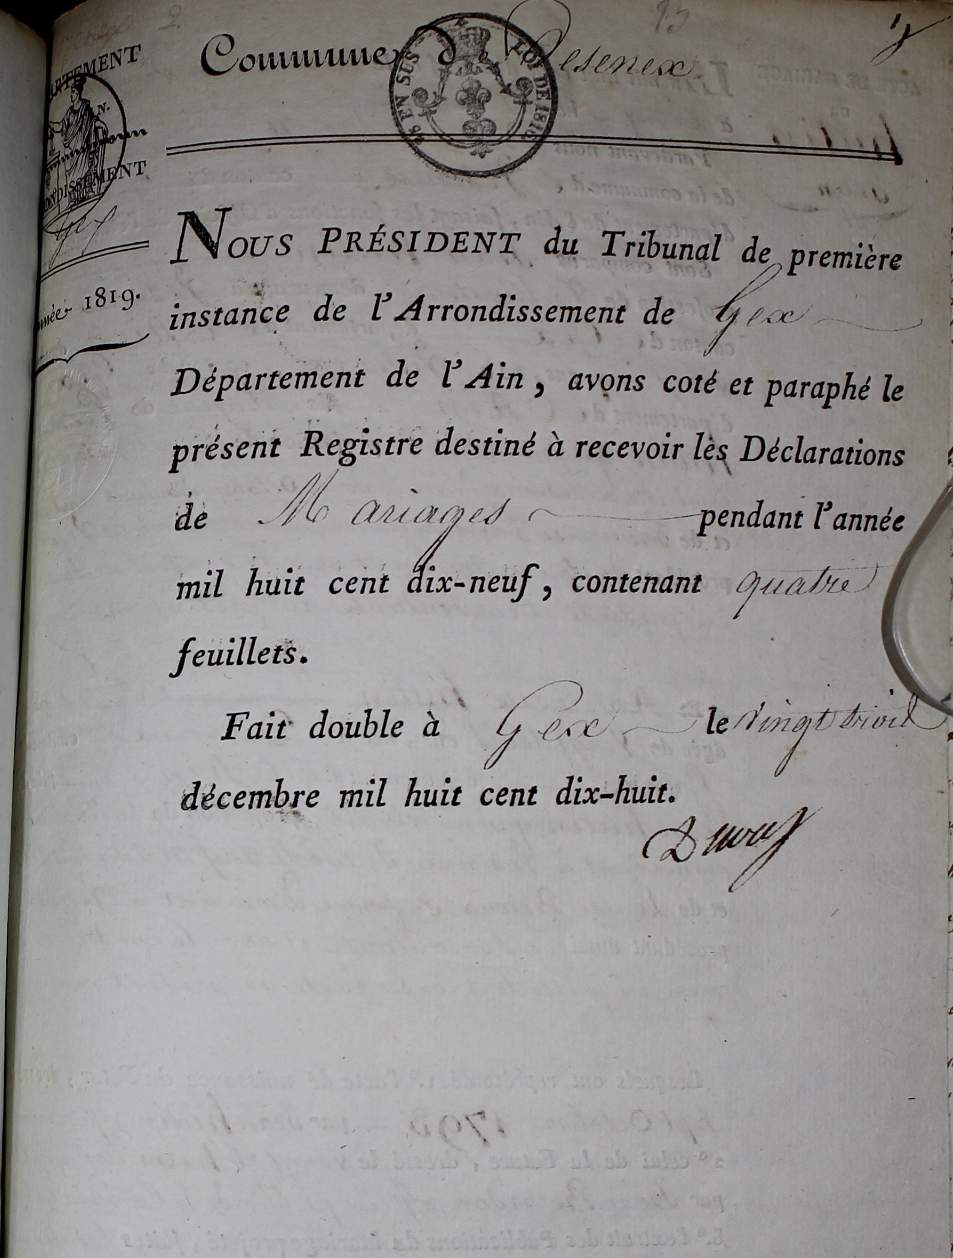 Commune de Vesenex
EN SUS
LOI DE 1816
DÉPARTEMENT
ARRONDISSEMENT
Gex
Année 1819.
NOUS PRÉSIDENT du Tribunal de première
instance de l'Arrondissement de Gex
Département de l'Ain, avons coté et paraphé le
présent Registre destiné à recevoir les Déclarations
de Mariages pendant l'année
mil huit cent dix-neuf, contenant quatre
feuillets.
Fait double à Gex le vingt trois
décembre mil huit cent dix-huit.